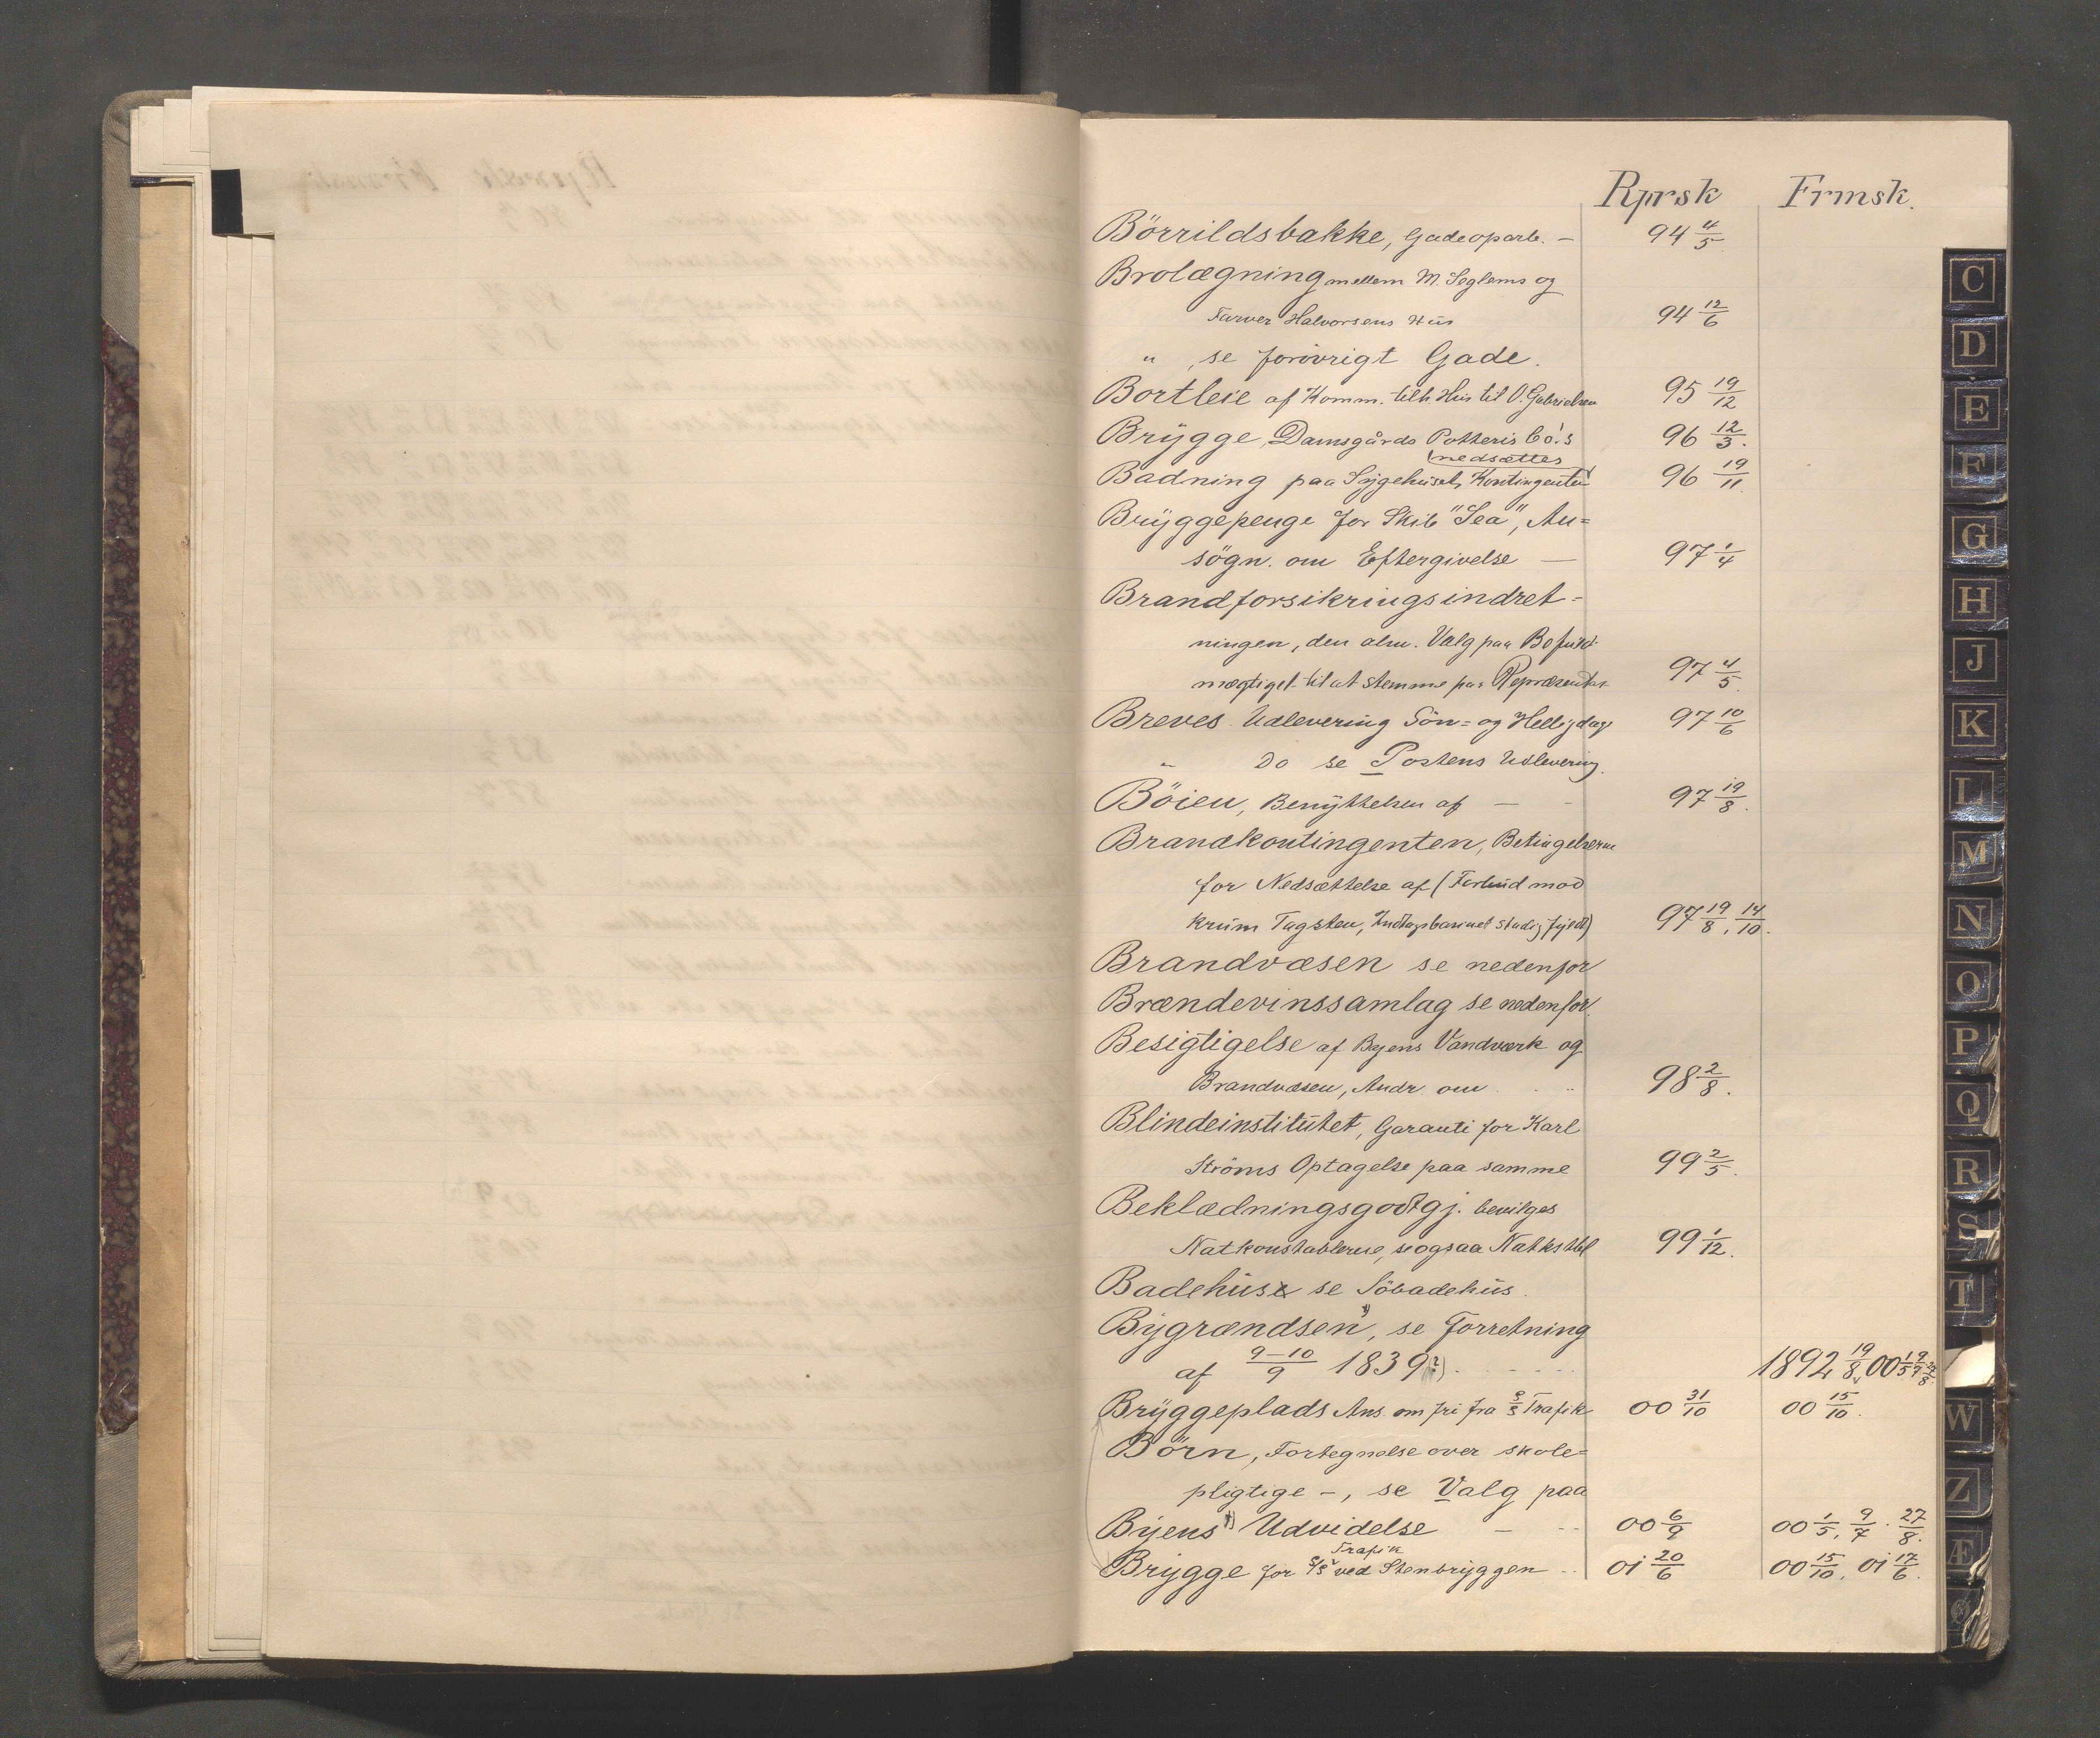 Rprsk Frmsk.
Börrildsbakke, Gadeoparb. — 94 4/5
Brolægning mellem M. Seglems og
Farver Halvorsens Hus 94 12/6
" , se forövrigt Gade.
Bortleie af Komm. tilh. Hus til O. Gabrielsen 95 19/12
Brygge, Damsgårds Potteris Co's 96 12/3.
nedsættes
Badning paa Sygehuset, Kontingenten 96 19/11.
Bryggepenge for Skib "Sea", An=
sögn. om Eftergivelse — 97 1/4
Brandforsikringsindret=
ningen, den alm. Valg paa Befuld-
mægtiget til at stemme paa Repræsentant 97 4/5.
Breves Udlevering Sön= og Helligdage 97 10/6
" Do se Postens Udlevering.
Böien, Benyttelsen af — - 97 19/8.
Brandkontingenten, Betingelserne
for Nedsættelse af (Forbud mod
krum Tagsten, Indtagsbasinet stadig fyldt) 97 19/8, 14/10.
Brandvæsen se nedenfor
Brændevinssamlag se nedenfor.
Besigtigelse af Byens Vandværk og
Brandvæsen, Andr. om 98 2/8.
Blindeinstitutet, Garanti for Karl
Ströms Optagelse paa samme 99 2/5.
Beklædningsgodtgj. bevilges
Natkonstablerne, se ogsaa Natkstbl 99 1/12.
Badehus se Söbadehus.
Bygrændsen, se Forretning
af 9-10/9 1839(?) 1892 19/8, 00 1/5 9/7 27/8.
Bryggeplads Ans. om fri fra S/S Trafik 00 31/10 00 15/10.
Börn, Fortegnelse over skole=
pligtige -, se Valg paa
Byens Udvidelse — 00 6/9 00 1/5, 9/7. 27/8.
Trafik
Brygge for S/S ved Stenbryggen 01 20/6 00 15/10, 01 17/6.
C
D
E
F
G
H
J
K
L
M
N
O
P
Q
R
S
T
W
Z
Æ
Ø